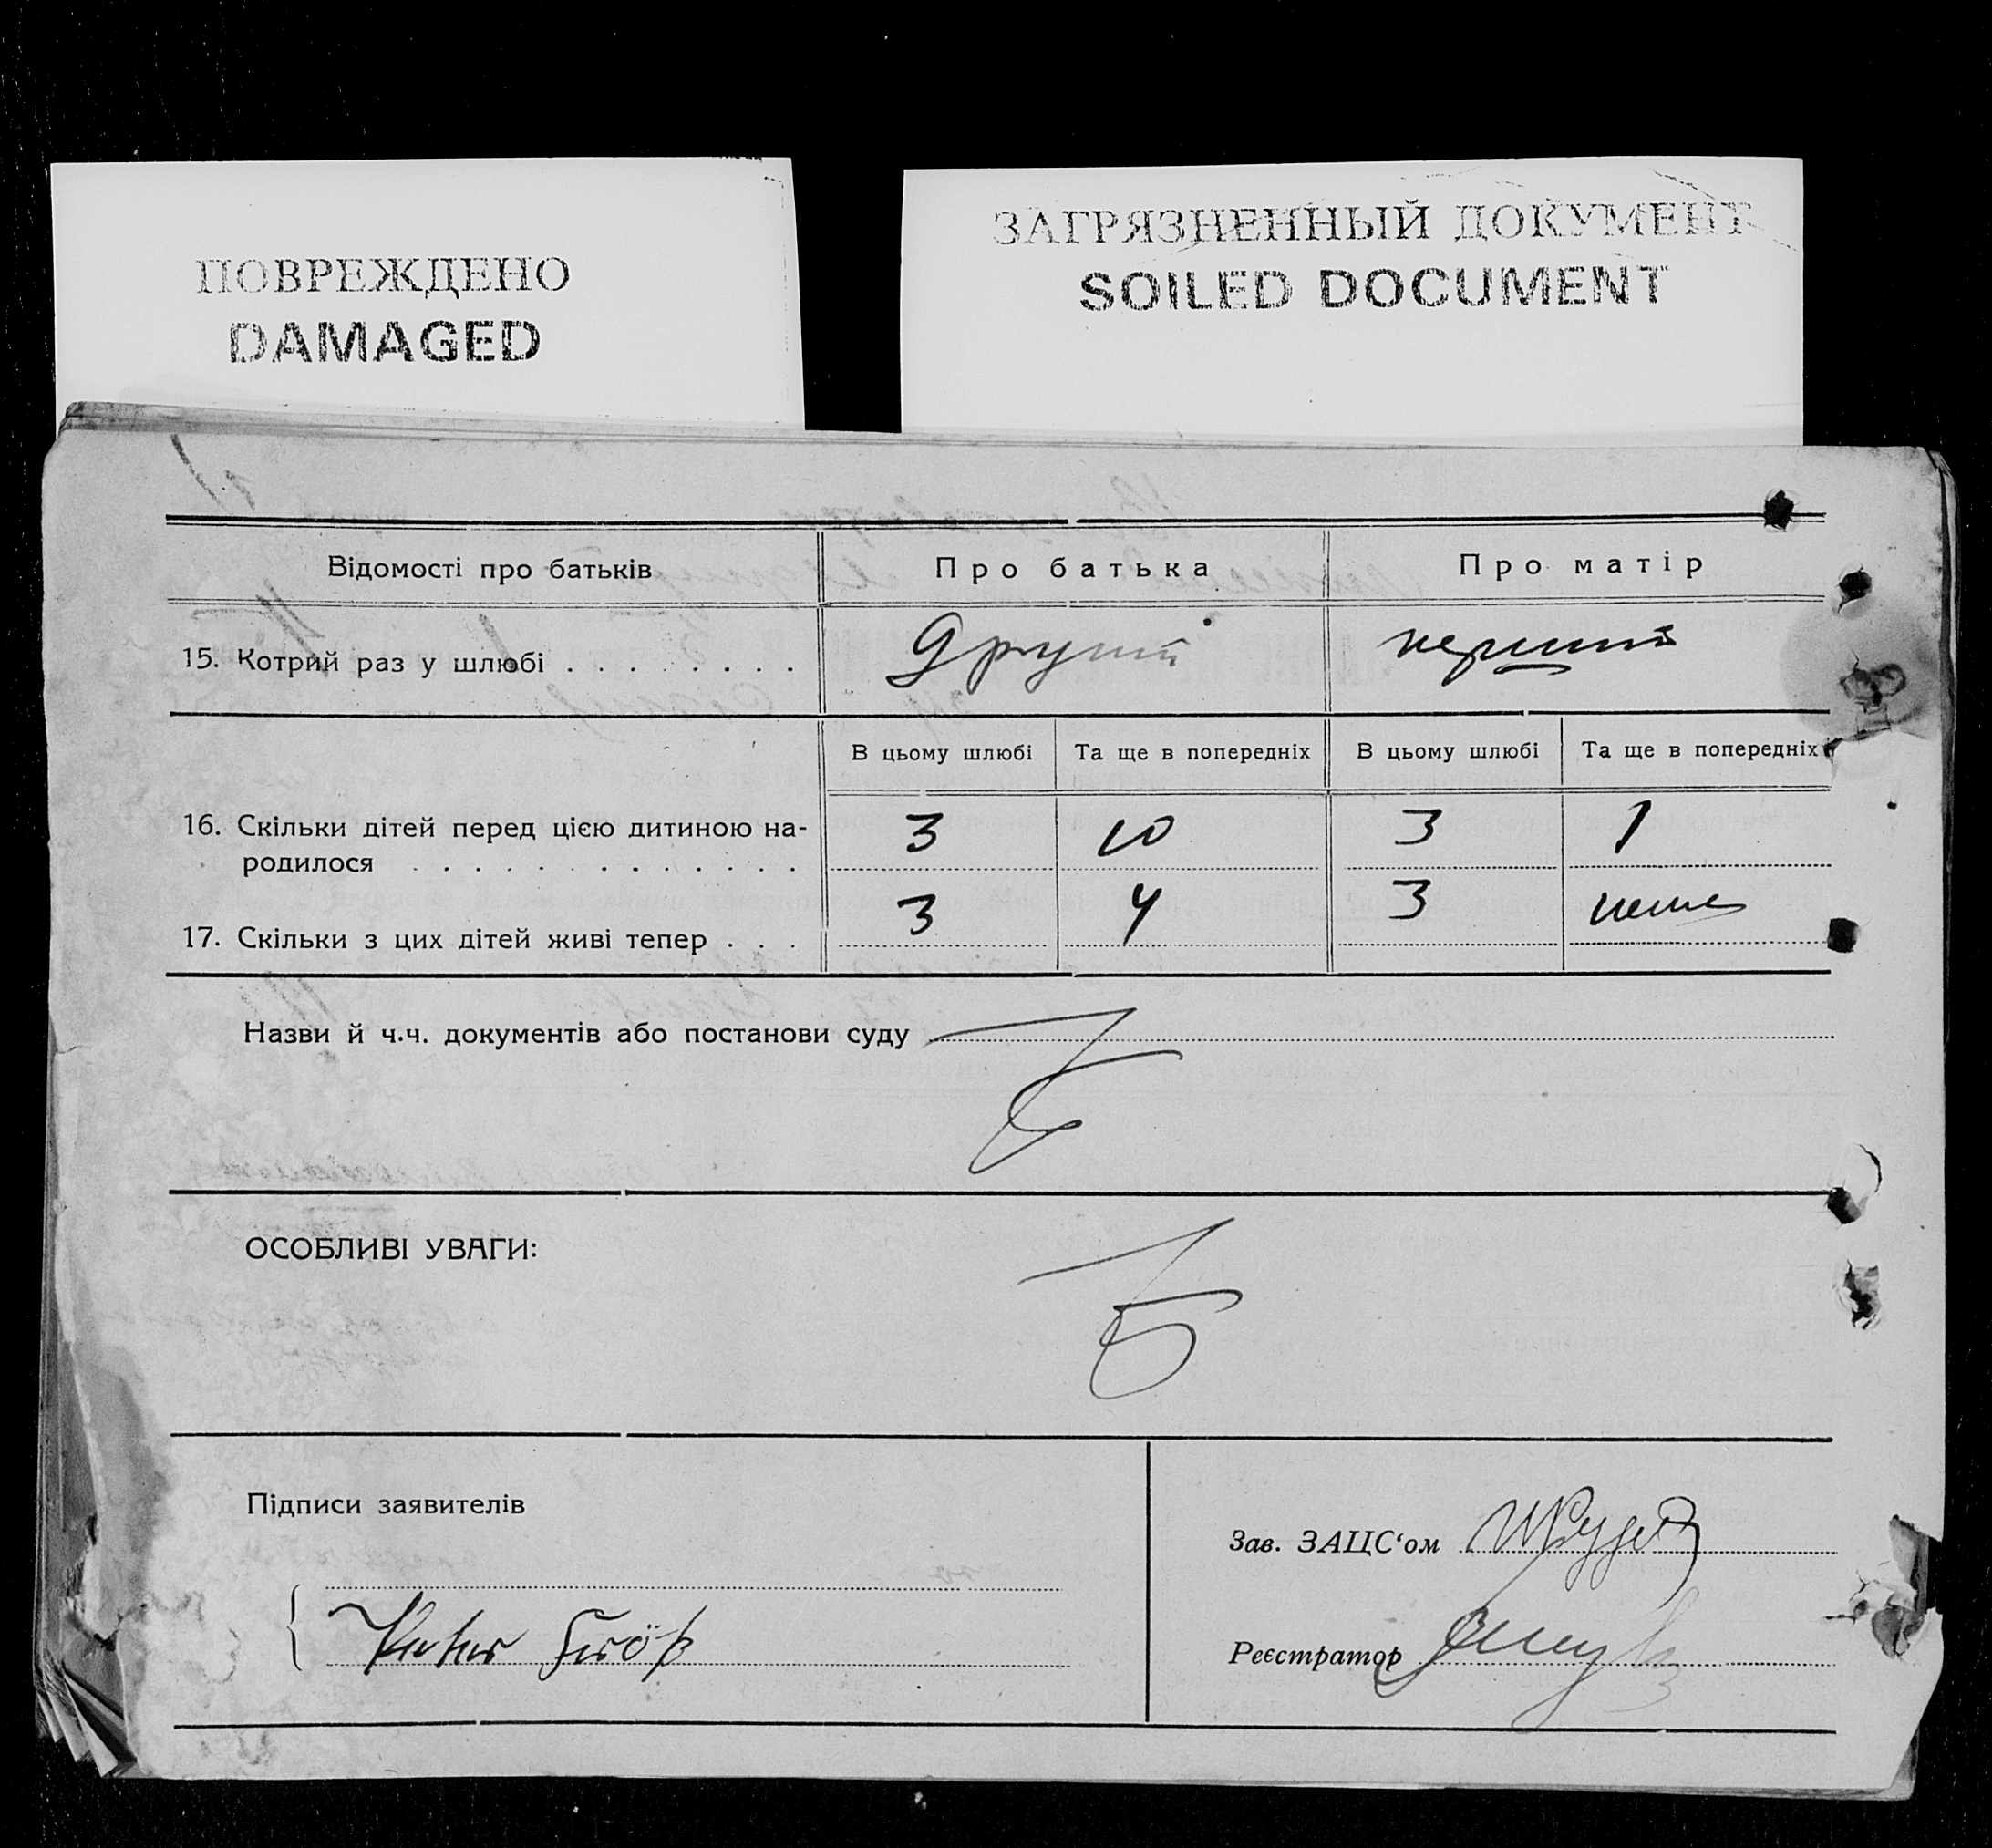 ПОВРЕЖДЕНО
DAMAGED
ЗАГРЯЗНЕННЫЙ ДОКУМЕНТ
SOILED DOCUMENT
Відомості про батьків Про батька Про матір
15. Котрий раз у шлюбі . . . . . . . . Другий перший
В цьому шлюбі Та ще в попередніх В цьому шлюбі Та ще в попередніх
16. Скільки дітей перед цією дитиною на-
родилося . . . . . . . . . . . . . 3 10 3 1
17. Скільки з цих дітей живі тепер . . . 3 4 3 нема
Назви й ч.ч. документів або постанови суду
ОСОБЛИВІ УВАГИ:
Підписи заявителів
Зав. ЗАЦС‘ом
Peter
Реєстратор